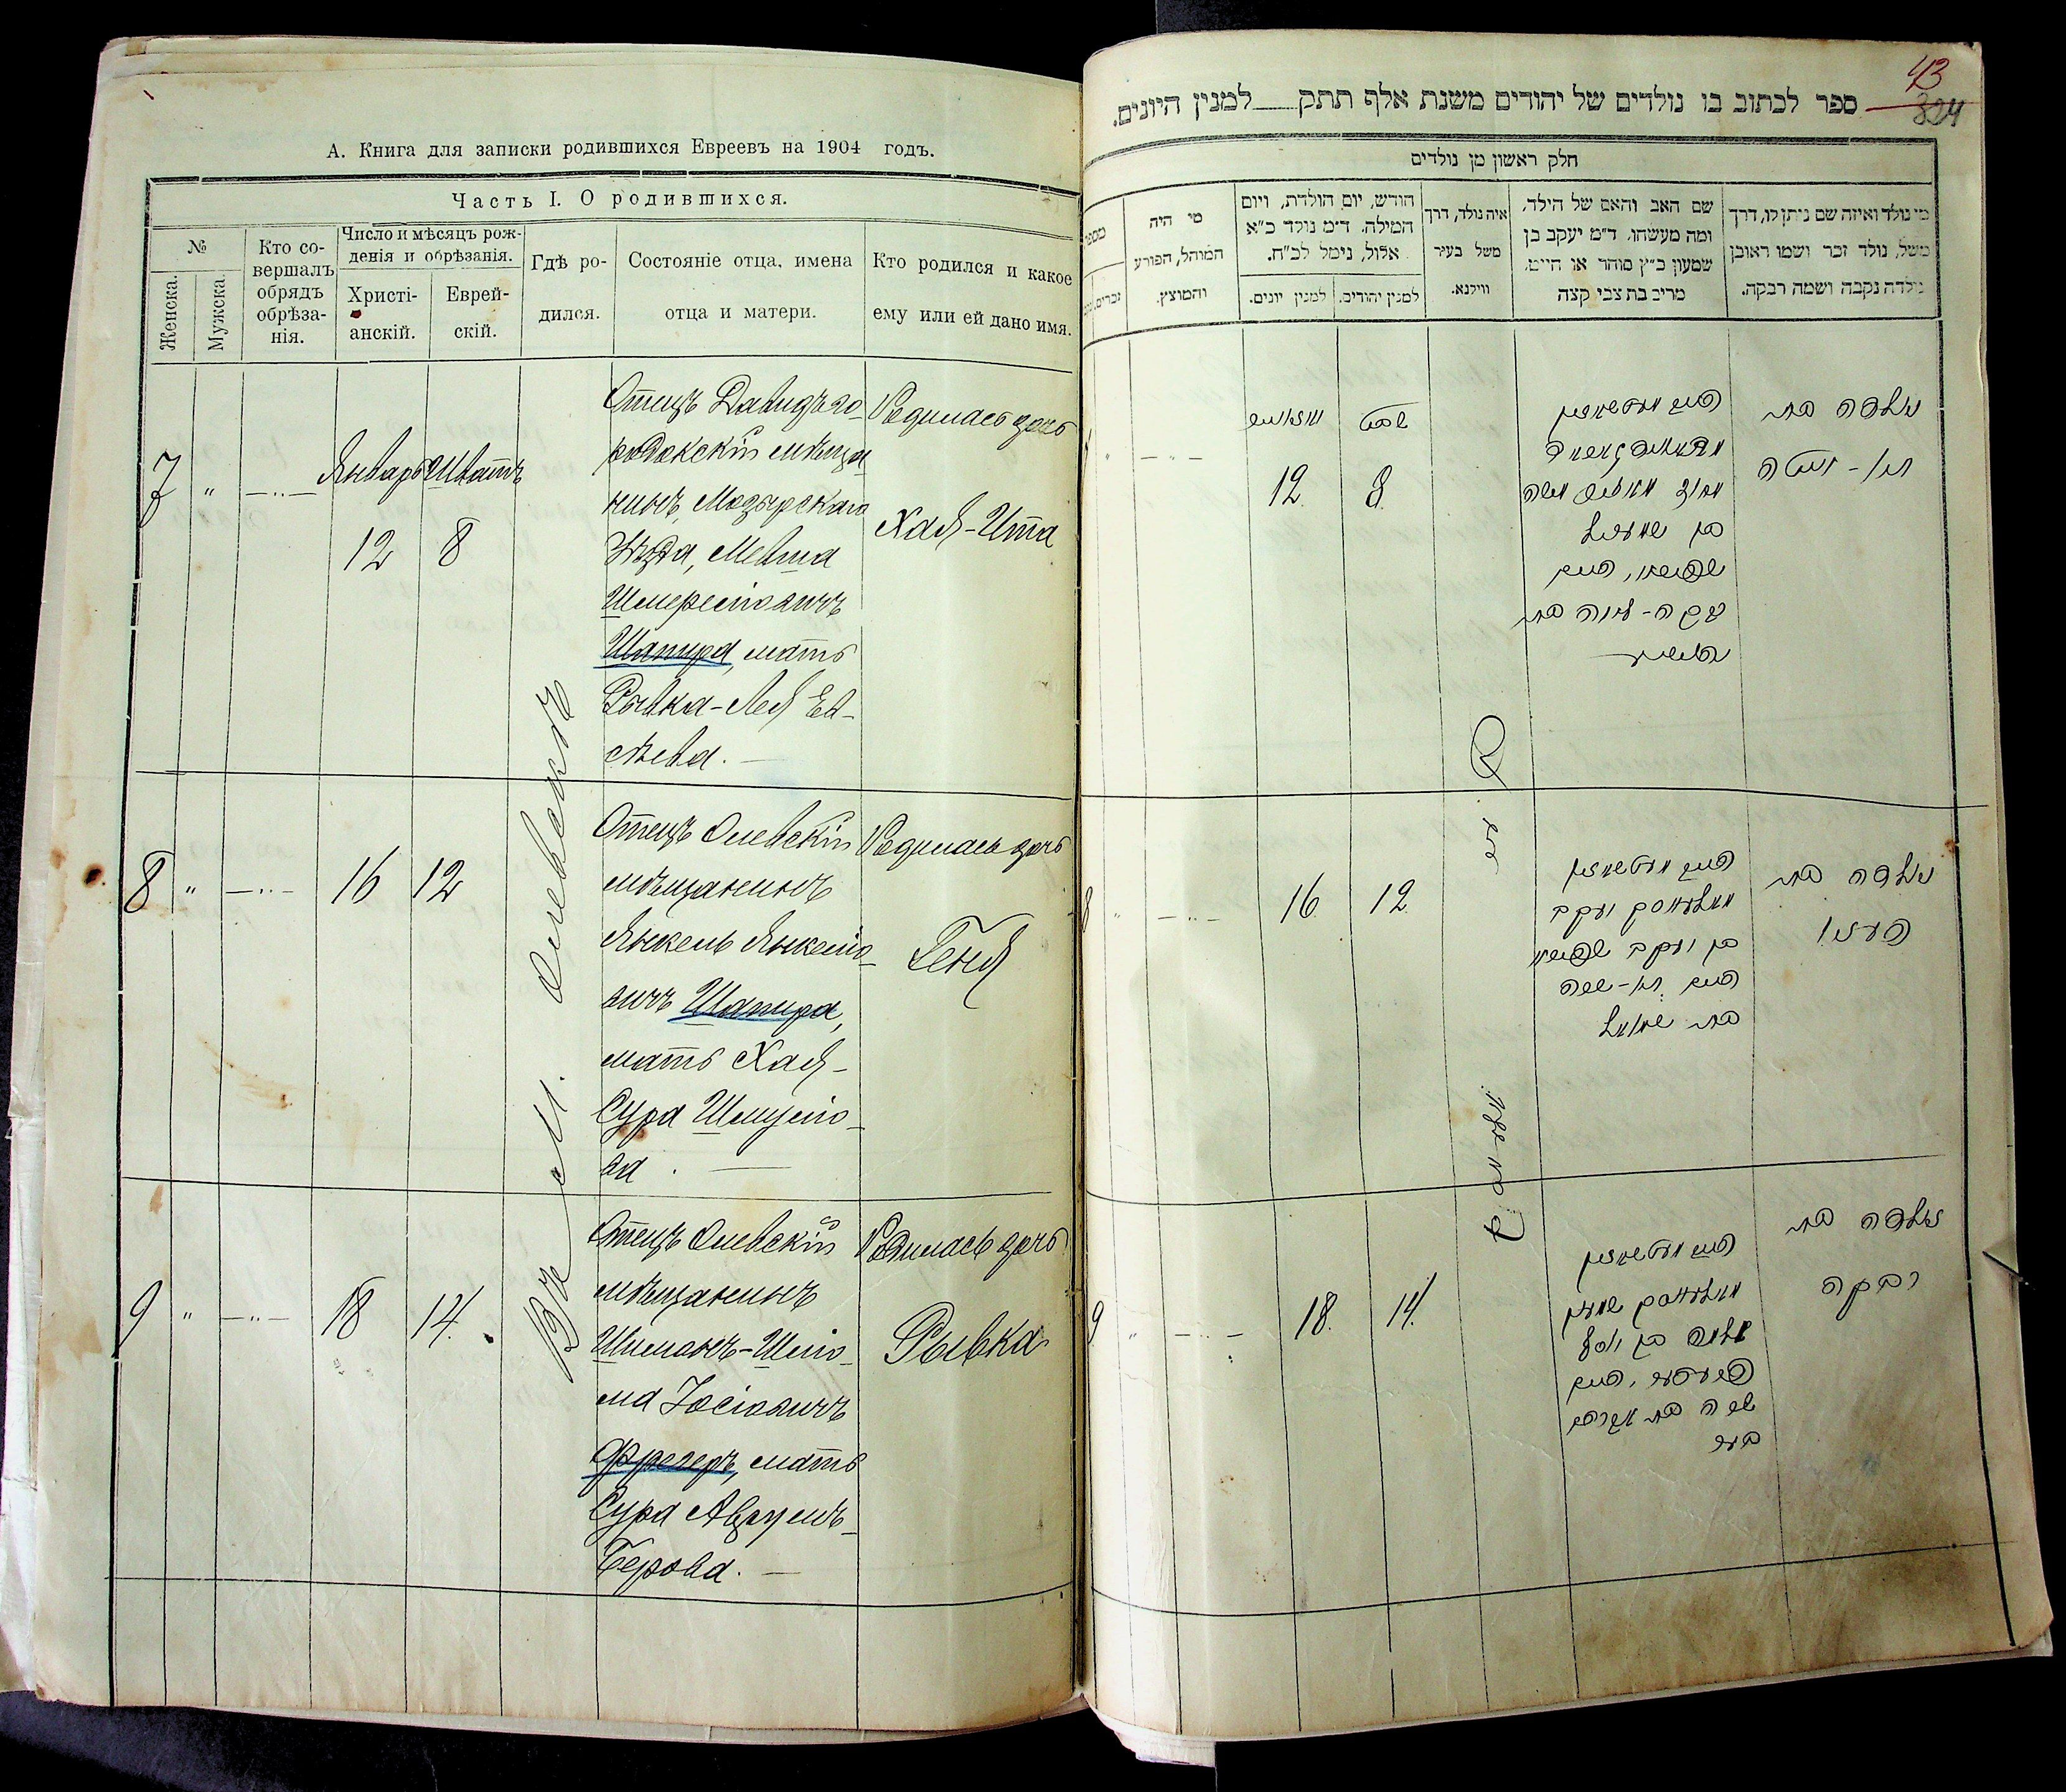 А. Книга для записки родившихся Евреевъ на 1904 годъ.
Часть I. О родившихся.
№
Женска.
Мужска.
Кто со-
вершалъ
обрядъ
обрѣза-
нія.
Число и мѣсяцъ рож-
денія и обрѣзанія.
Христі-
анскій.
Еврей-
скій.
Гдѣ ро-
дился.
Состояніе отца, имена
отца и матери.
Кто родился и какое
ему или ей дано имя.
7
"
Январь
12
Шватъ
8
Отецъ Давидъго-
родокскій мѣща
нинъ, Мозырскаго
Уѣзда, Мевша
Шмерелiовичъ
Шапира, мать
Рывка-Лея Ев-
сѣева.
Родилась дочь
Хая-Ита
8
"
16
12
Отецъ Олевскій
мѣщанинъ
Янкель Янкеліо-
вичъ Шапира,
мать Хая-
Сура Шмуліо-
ва.
Родилась дочь
Геня
9
"
18
14.
Отецъ Олевскій
мѣщанинъ
Шиманъ-Шліо-
ма Іосіовичъ
мать
Сура Аврумъ-
Берова.
Родилась дочь
Рывка
Въ М. Олевскѣ
43
824
ספר לכתוב בו נולדים של יהודים משנת אלף תתק למנין היונים.
חלק ראשון מן נולדים
מי נולד ואיזה שם ניתן לו, דרך
משל, נולד זכר ושמו ראובן
נולדה נקבה ושמה רבקה.
שם האב והאם של הילד,
ומה מעשהו. ד״מ יעקב בן
שמעון כ״ץ סוחר או חייט,
מריב בת צבי קצה
איה נולד, דרך
משל בעיר
ווילנא.
חודש, יום הולדת, ויום
המילה. ד״מ נולד כ״א
אלול, נימל לכ״ח.
למנין יהודים.
למנין יונים.
מי היה
המוהל, הפורע
והמוצץ.
מספר
זכרים.
נולדה בת
חי׳ - איטה
בן שמערל
שפירא, האם
רבקה - לאה בת
שבט
8.
יאנואר
12.
נולדה בת
העניא
בן יעקב שפירא
האם חי׳ - שרה
בת שמואל
12.
16.
8
"
נולדה בת
רבקה
שלמה בן יוסף
האם
שרה בת אברהם
בער
14.
18.
9
"